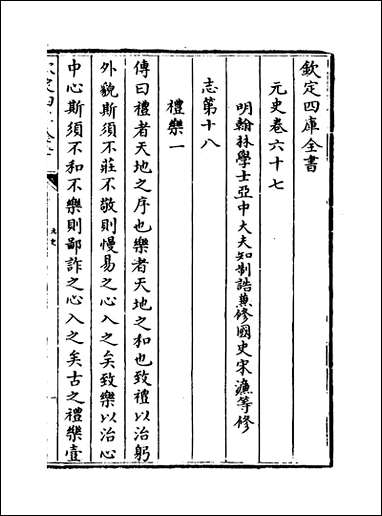 欽定四庫全書
元史卷六十七
明翰林學士亞中大夫知制誥兼修國史宋濂等修
志第十八
禮樂一
傳曰禮者天地之序也樂者天地之和也致禮以治躬
外貌斯須不莊不敬則慢易之心入之矣致樂以治心
中心斯須不和不樂則鄙詐之心入之矣古之禮樂壹
元史